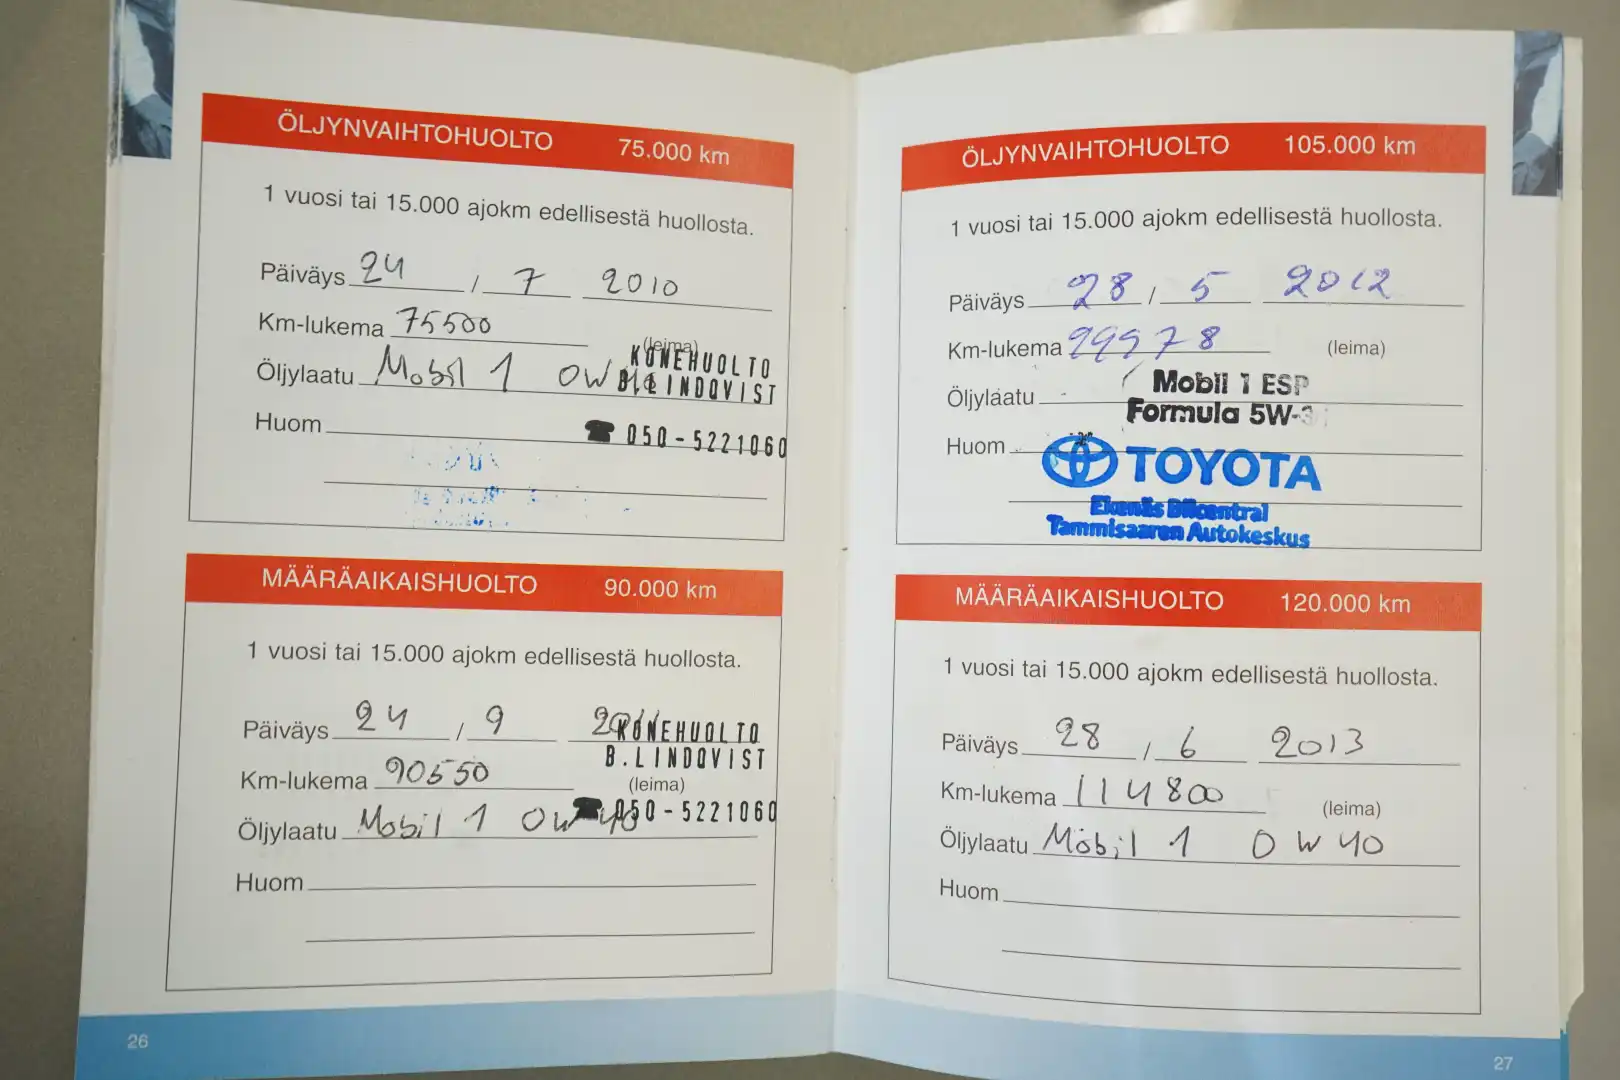 ÖLJYNVAIHTOHUOLTO 75.000 km
1 vuosi tai 15.000 ajokm edellisestä huollosta.
Päiväys 24 / 7 2010
Km-lukema 75500
(leima)
KONEHUOLTO
Öljylaatu Mobil 1 0W
B.LINDQVIST
Huom
☎ 050-5221060
MÄÄRÄAIKAISHUOLTO 90.000 km
1 vuosi tai 15.000 ajokm edellisestä huollosta.
Päiväys 24 / 9 2011
KONEHUOLTO
B.LINDQVIST
Km-lukema 90550
(leima)
☎ 050-5221060
Öljylaatu Mobil 1 0W40
Huom
26
ÖLJYNVAIHTOHUOLTO 105.000 km
1 vuosi tai 15.000 ajokm edellisestä huollosta.
Päiväys 28 / 5 2012
Km-lukema 99978 (leima)
Öljylaatu Mobil 1 ESP
Formula
Huom
TOYOTA
Ekenäs Bilcentral
Tammisaaren Autokeskus
MÄÄRÄAIKAISHUOLTO 120.000 km
1 vuosi tai 15.000 ajokm edellisestä huollosta.
Päiväys 28 / 6 2013
Km-lukema 114800 (leima)
Öljylaatu Mobil 1 0W40
Huom
27